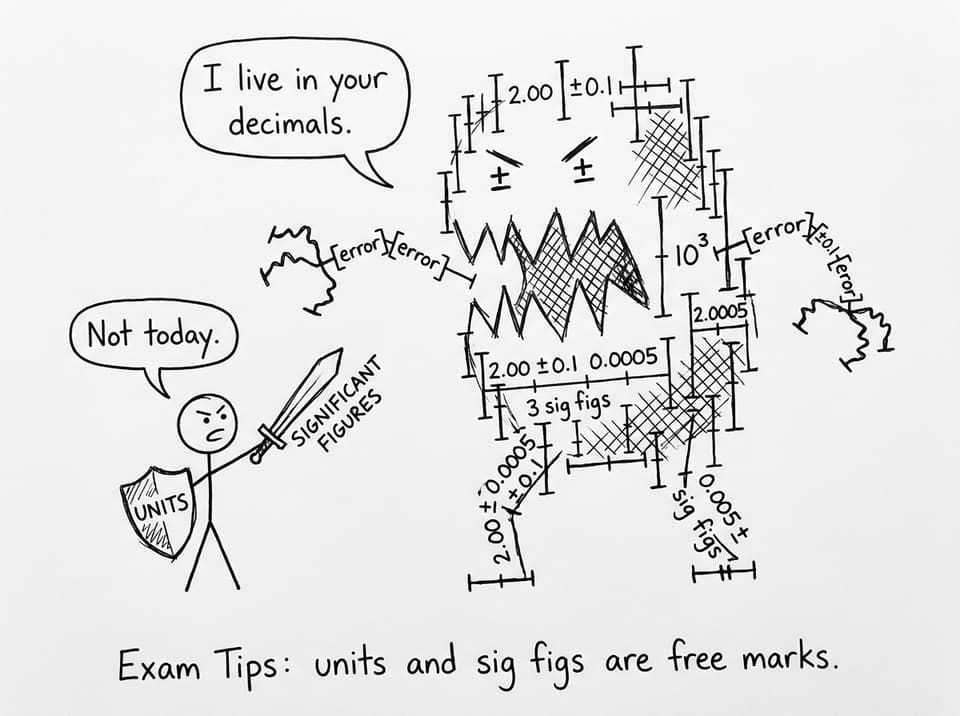 I live in your
decimals.
2.00 ±0.1
± ±
[error]{error]
10³
[error]
±0.1
[eror]
2.0005
Not today.
2.00 ±0.1 0.0005
3 sig figs
SIGNIFICANT
FIGURES
UNITS
2.00 ± 0.0005
±0.1
0.005 ±
sig figs
Exam Tips: units and sig figs are free marks.